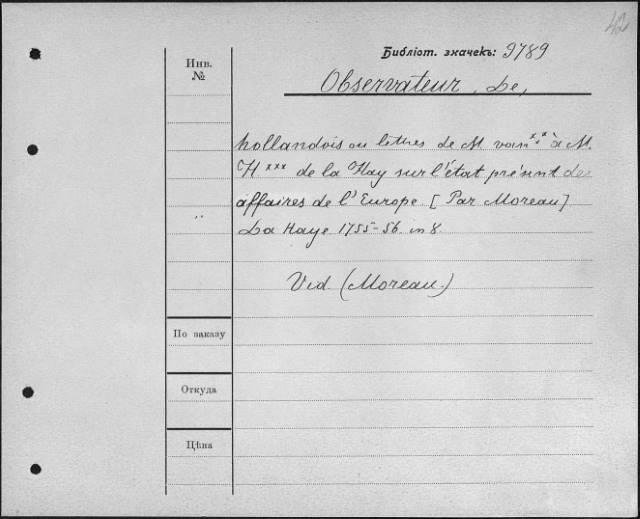 42
Библіот. значекъ: 9789
Инв.
№
Observateur, Le,
hollandois ou lettres de M. van xxx à M.
H xxx de la Hay sur l'état présnt des
affaires de l'Europe. [Par Moreau]
La Haye 1755-56. in 8.
Vid. (Moreau.)
По заказу
Откуда
Цѣна